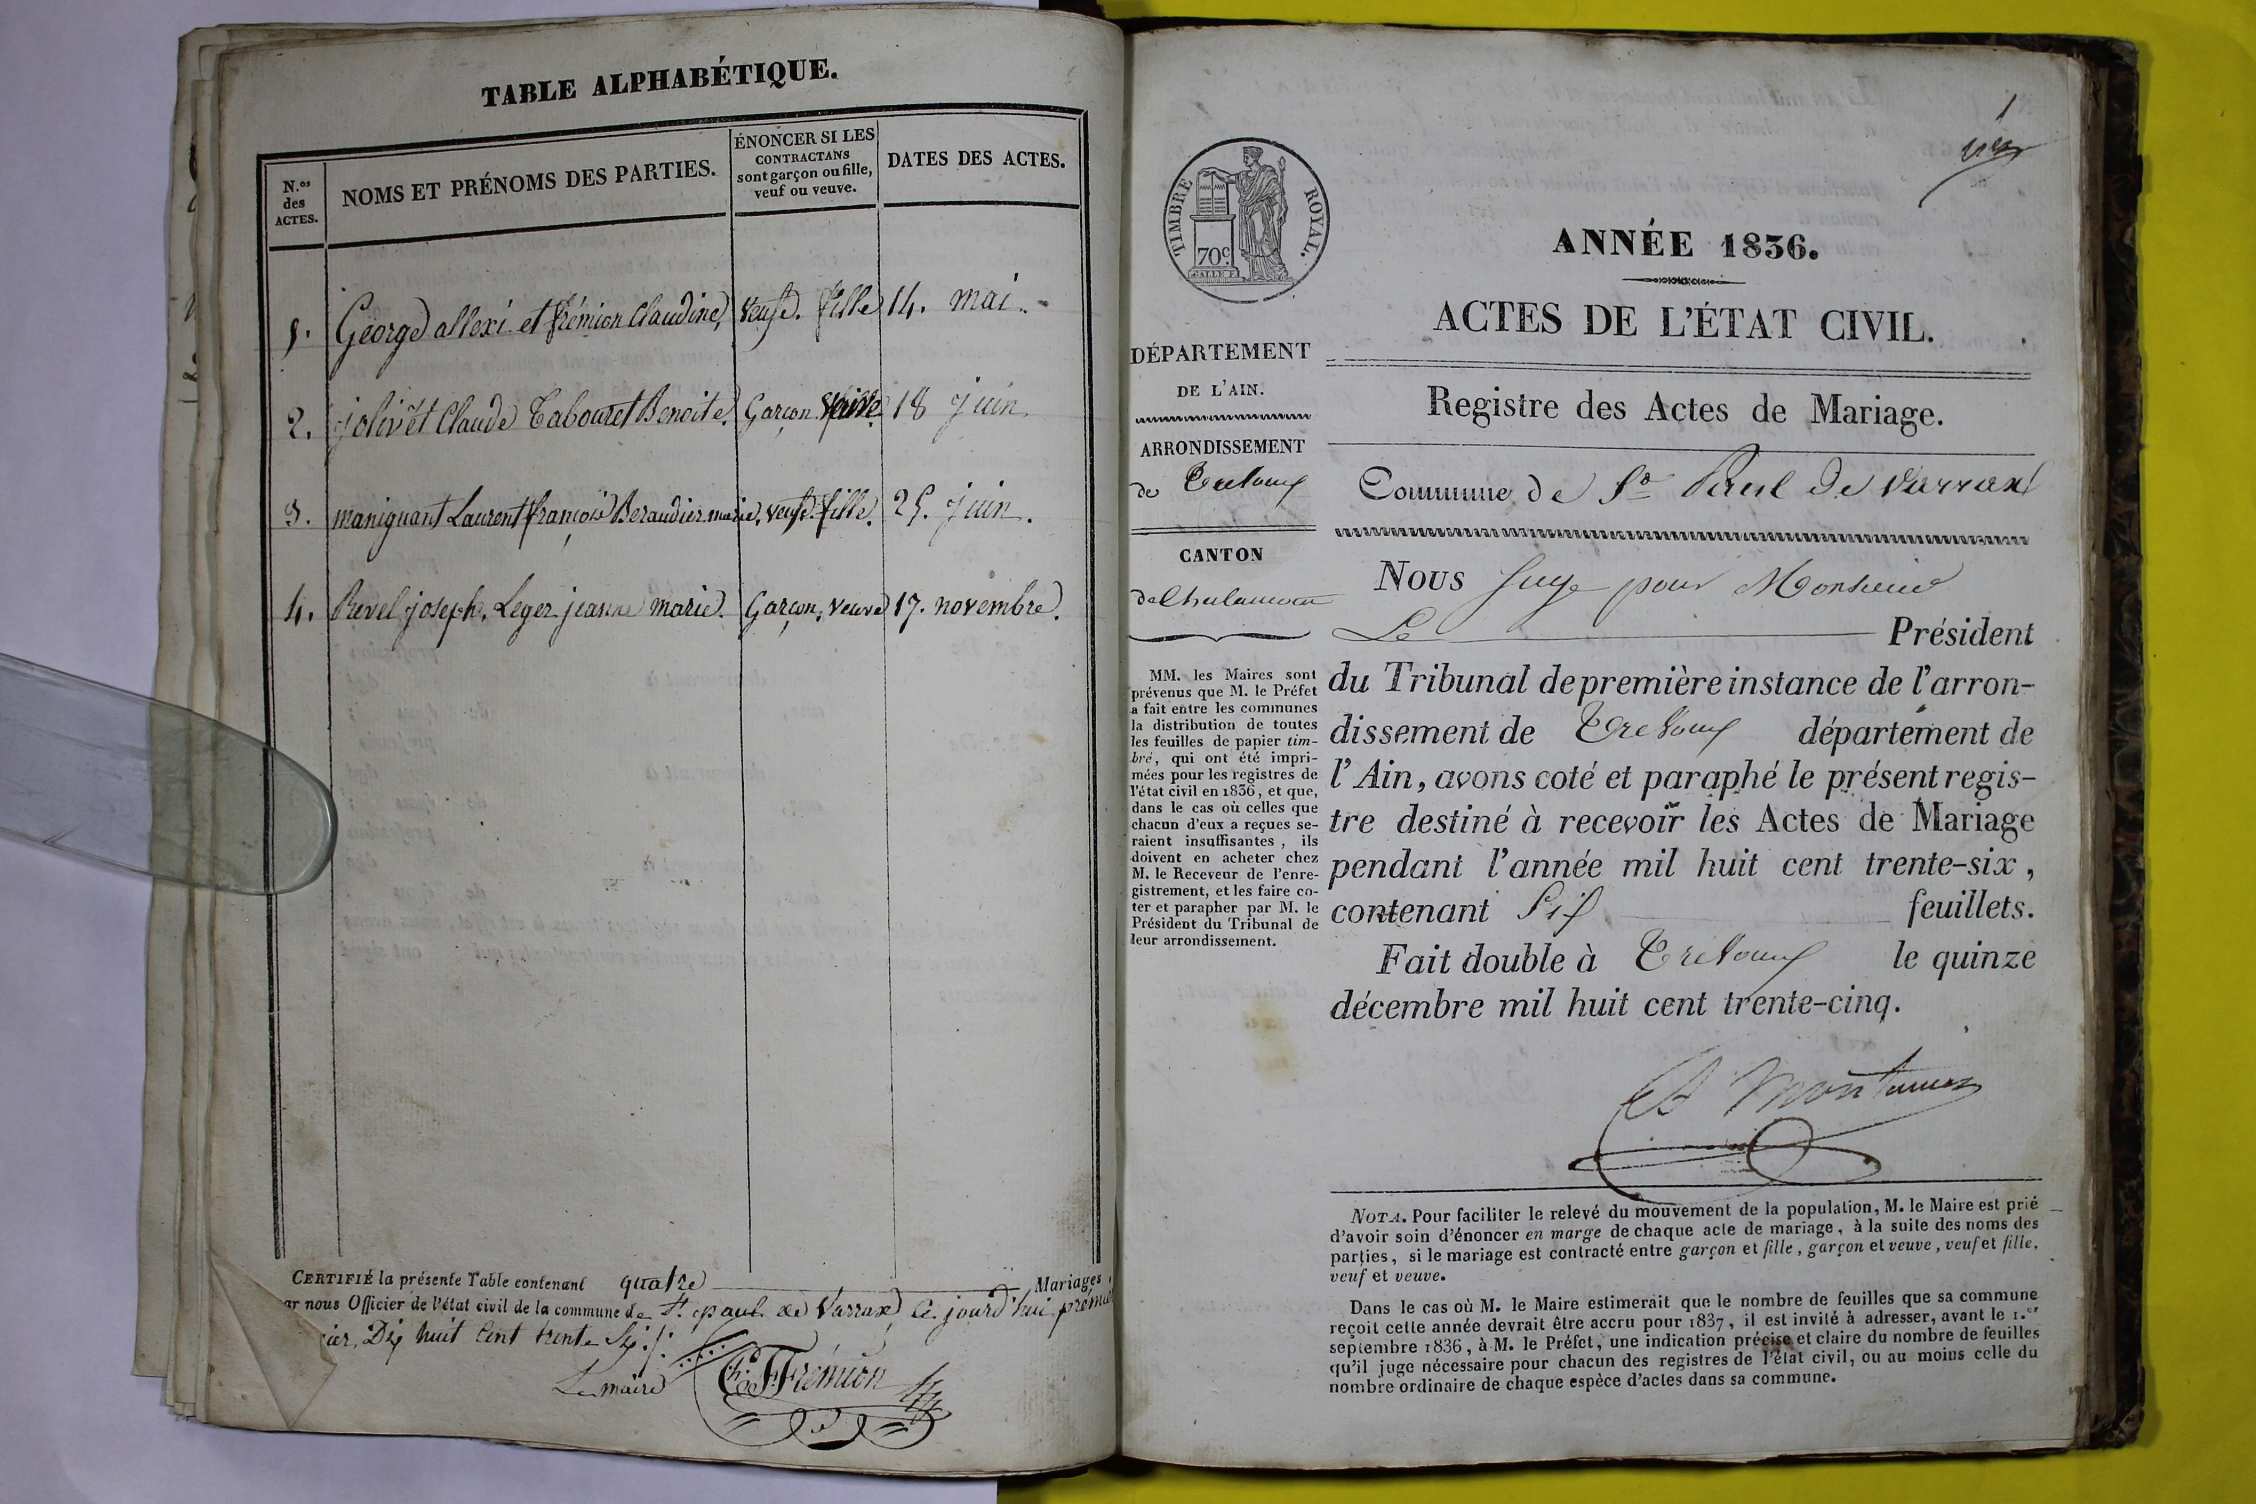 TABLE ALPHABÉTIQUE.
N.os des ACTES.
NOMS ET PRÉNOMS DES PARTIES.
ÉNONCER SI LES CONTRACTANS sont garçon ou fille, veuf ou veuve.
DATES DES ACTES.
1. George allexi et frémion Claudine, veuf. fille 14. mai.
2. jolivet Claude Tabouret Benoite. Garçon veuve. 18 juin.
3. maniguant Laurent françois Beraudier marie, veuf. fille. 25. juin.
4. Revel joseph, Leger jeanne marie. Garçon, veuve 17. novembre.
CERTIFIÉ la présente Table contenant quatre Mariages,
ar nous Officier de l'état civil de la commune de St. paul de Varrax, ce jourd'hui premier
ier, Dix huit Cent trente Six.
Le maire Frémion
1
TIMBRE ROYAL.
70c.
ANNÉE 1836.
ACTES DE L'ÉTAT CIVIL.
DÉPARTEMENT
DE L'AIN.
ARRONDISSEMENT
de Trevoux
CANTON
de Chalamont
MM. les Maires sont
prévenus que M. le Préfet
a fait entre les communes
la distribution de toutes
les feuilles de papier tim-
bré, qui ont été impri-
mées pour les registres de
l'état civil en 1836, et que,
dans le cas où celles que
chacun d'eux a reçues se-
raient insuffisantes, ils
doivent en acheter chez
M. le Receveur de l'enre-
gistrement, et les faire co-
ter et parapher par M. le
Président du Tribunal de
leur arrondissement.
Registre des Actes de Mariage.
Commune de St Paul de Varrax
NOUS Juge pour Monsieur
Le Président
du Tribunal de première instance de l'arron-
dissement de Trevoux département de
l'Ain, avons coté et paraphé le présent regis-
tre destiné à recevoir les Actes de Mariage
pendant l'année mil huit cent trente-six,
contenant Six feuillets.
Fait double à Trevoux le quinze
décembre mil huit cent trente-cinq.
NOTA. Pour faciliter le relevé du mouvement de la population, M. le Maire est prié
d'avoir soin d'énoncer en marge de chaque acte de mariage, à la suite des noms des
parties, si le mariage est contracté entre garçon et fille, garçon et veuve, veuf et fille,
veuf et veuve.
Dans le cas où M. le Maire estimerait que le nombre de feuilles que sa commune
reçoit cette année devrait être accru pour 1837, il est invité à adresser, avant le 1.er
septembre 1836, à M. le Préfet, une indication précise et claire du nombre de feuilles
qu'il juge nécessaire pour chacun des registres de l'état civil, ou au moins celle du
nombre ordinaire de chaque espèce d'actes dans sa commune.